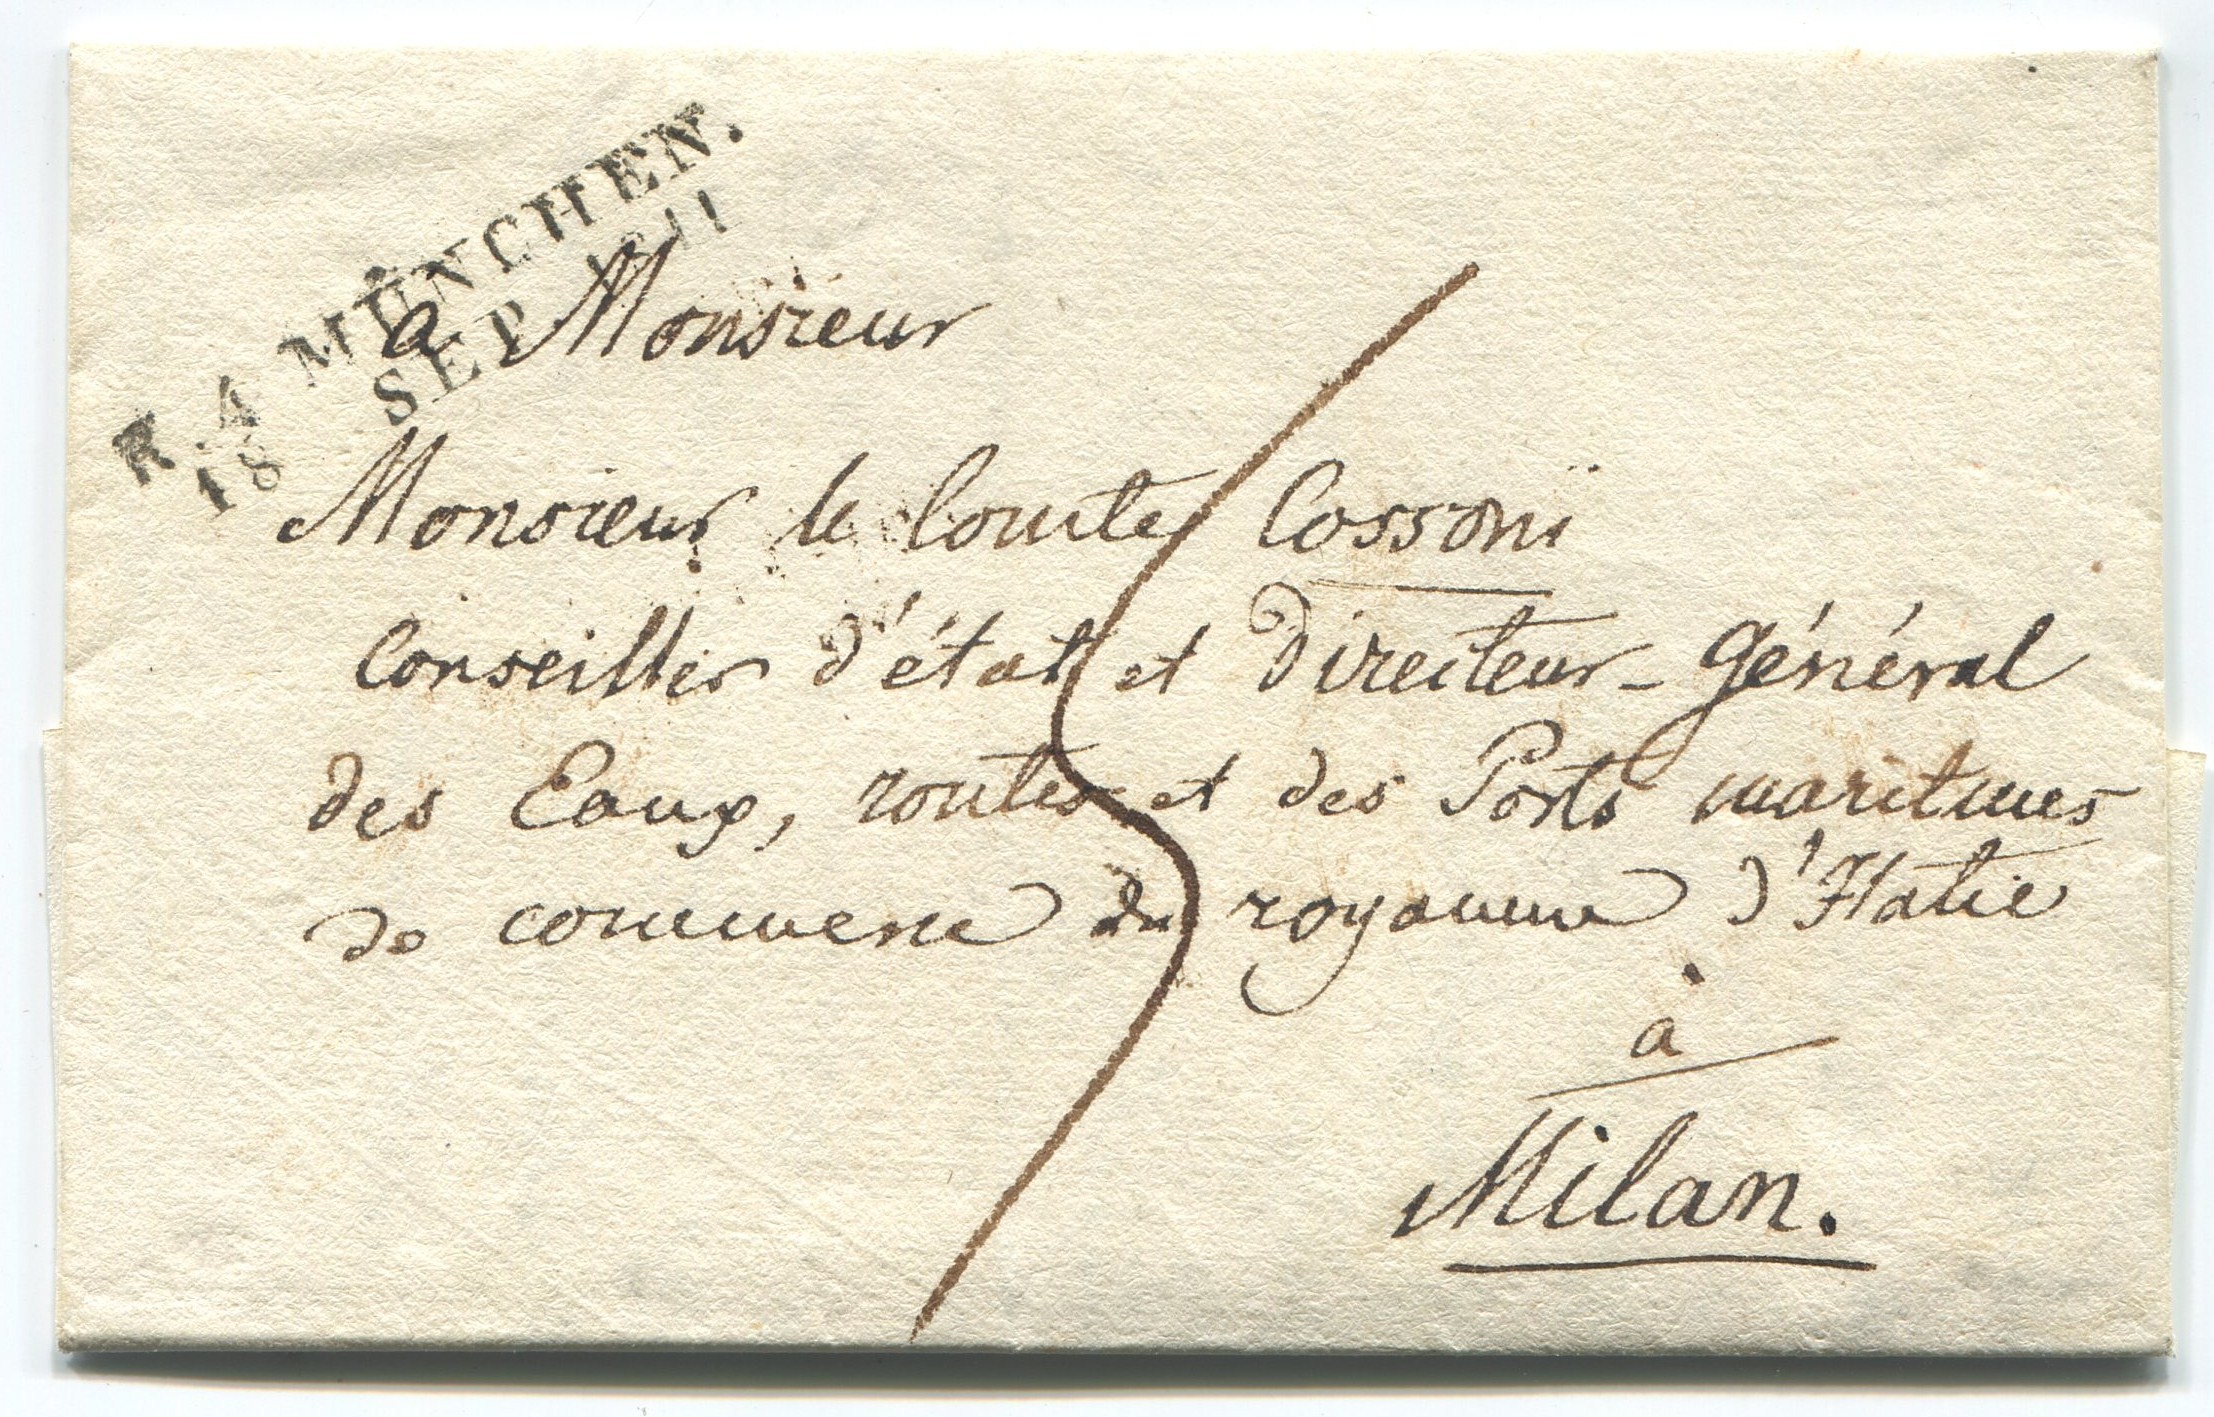 R. 4 MÜNCHEN.
18 SEP. 1811
a Monsieur
Monsieur le Comte Cossoni
Conseiller d'état et Directeur-Général
des Eaux, routes et des Ports maritimes
de commerce du royaume d'Italie
à
Milan.